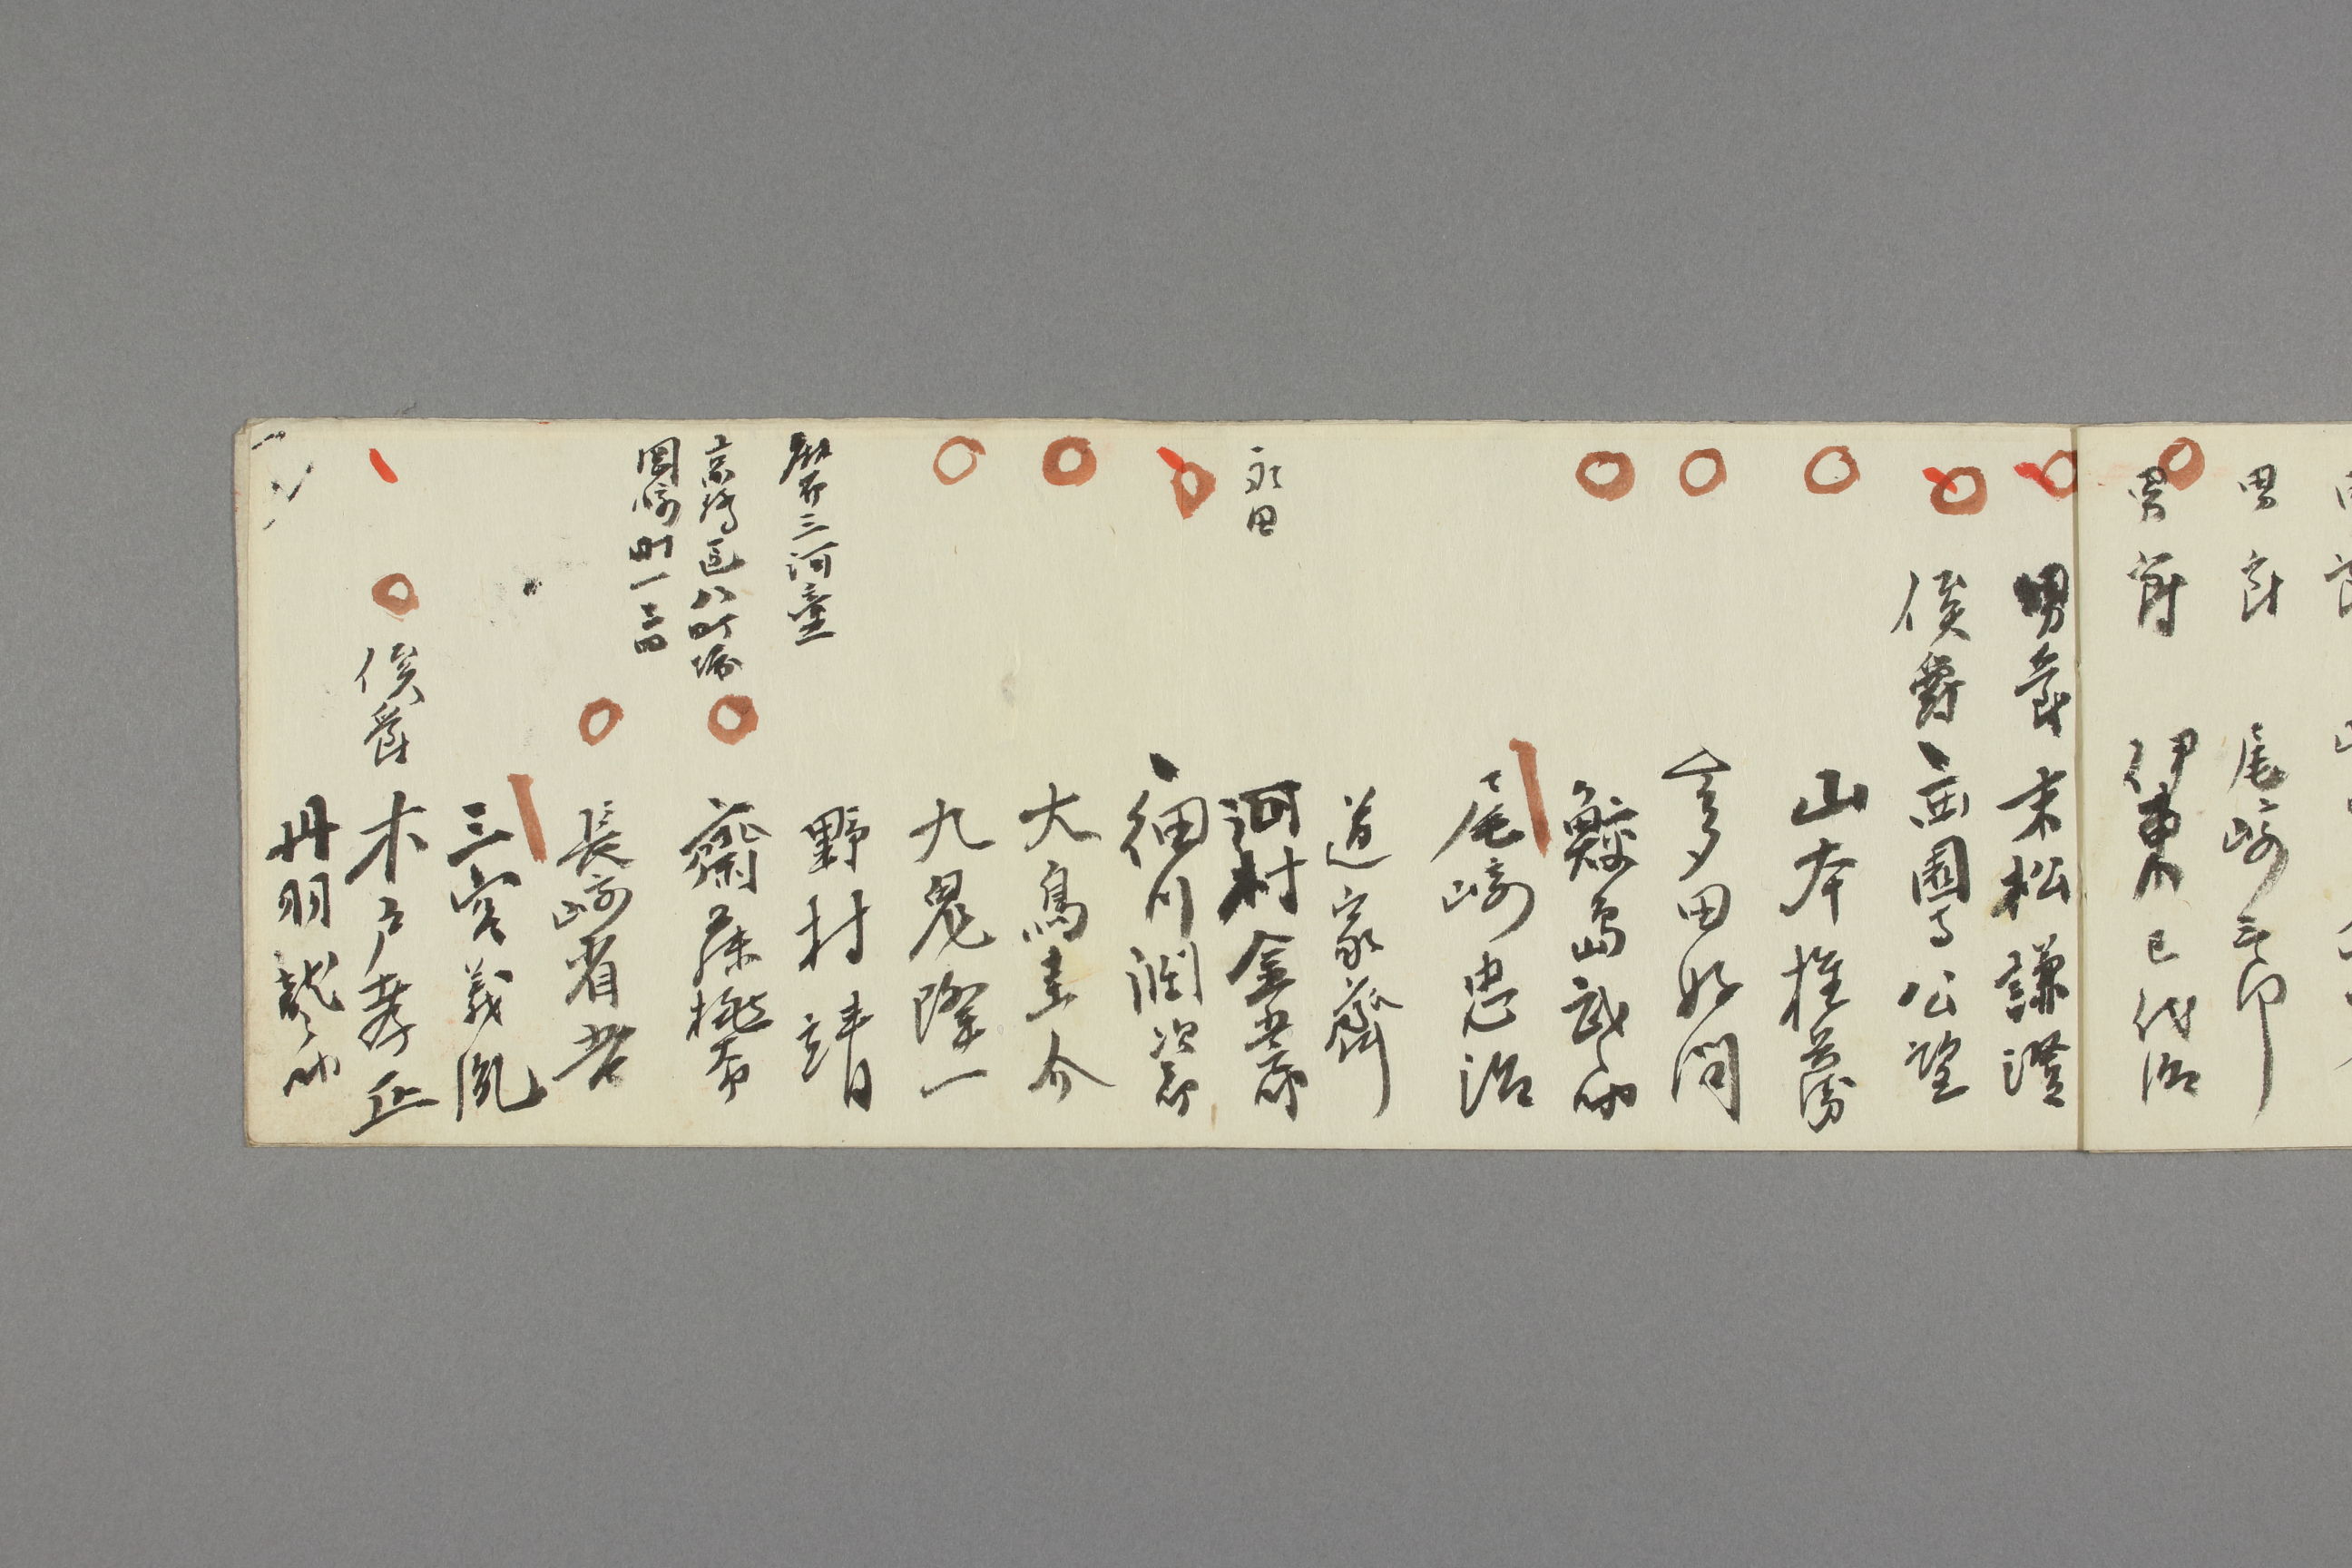 男爵 尾崎三郎
男爵 伊東巳代治
男爵 末松謙澄
侯爵 西園寺公望
山本
多田好問
鮫島武之助
尾崎忠治
道家齊
永田
河村金五郎
細川潤次郎
大鳥圭介
九鬼隆一
麻布三河臺
野村靖
京橋區八町堀
岡崎町一ノ
齋藤桃太郎
長崎省吾
三宮義胤
侯爵 木戸孝正
丹羽龍之助